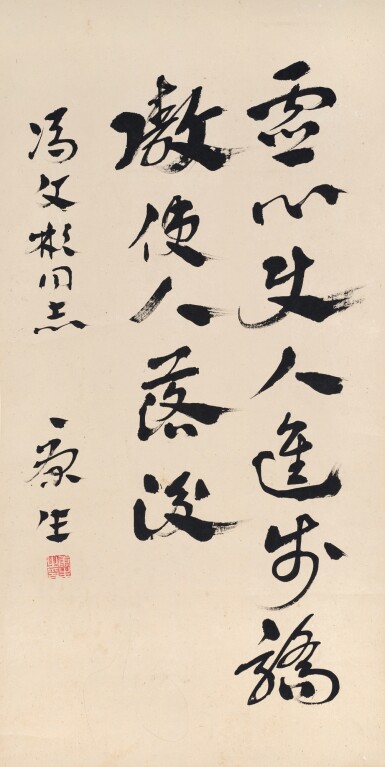 虚心使人進步驕
傲使人落後
馮文彬同志
康生